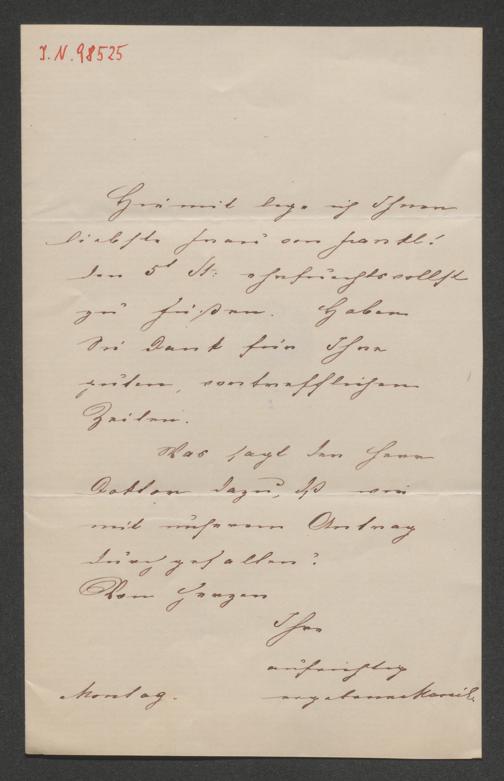 J. N. 98525
Hiermit lege ich Ihnen
liebste Frau von Frankl!
den 5t St: ehrfuchtsvollst
zu Füßen. Haben
Sie Dank für Ihre
guten, vortrefflichen
Zeilen.
Was sagt den Herr
Doktor dazu, dß wir
mit unserem Antrag
durchgefallen?
Von Herzen
Ihre
aufrichtig
Montag. ergebene